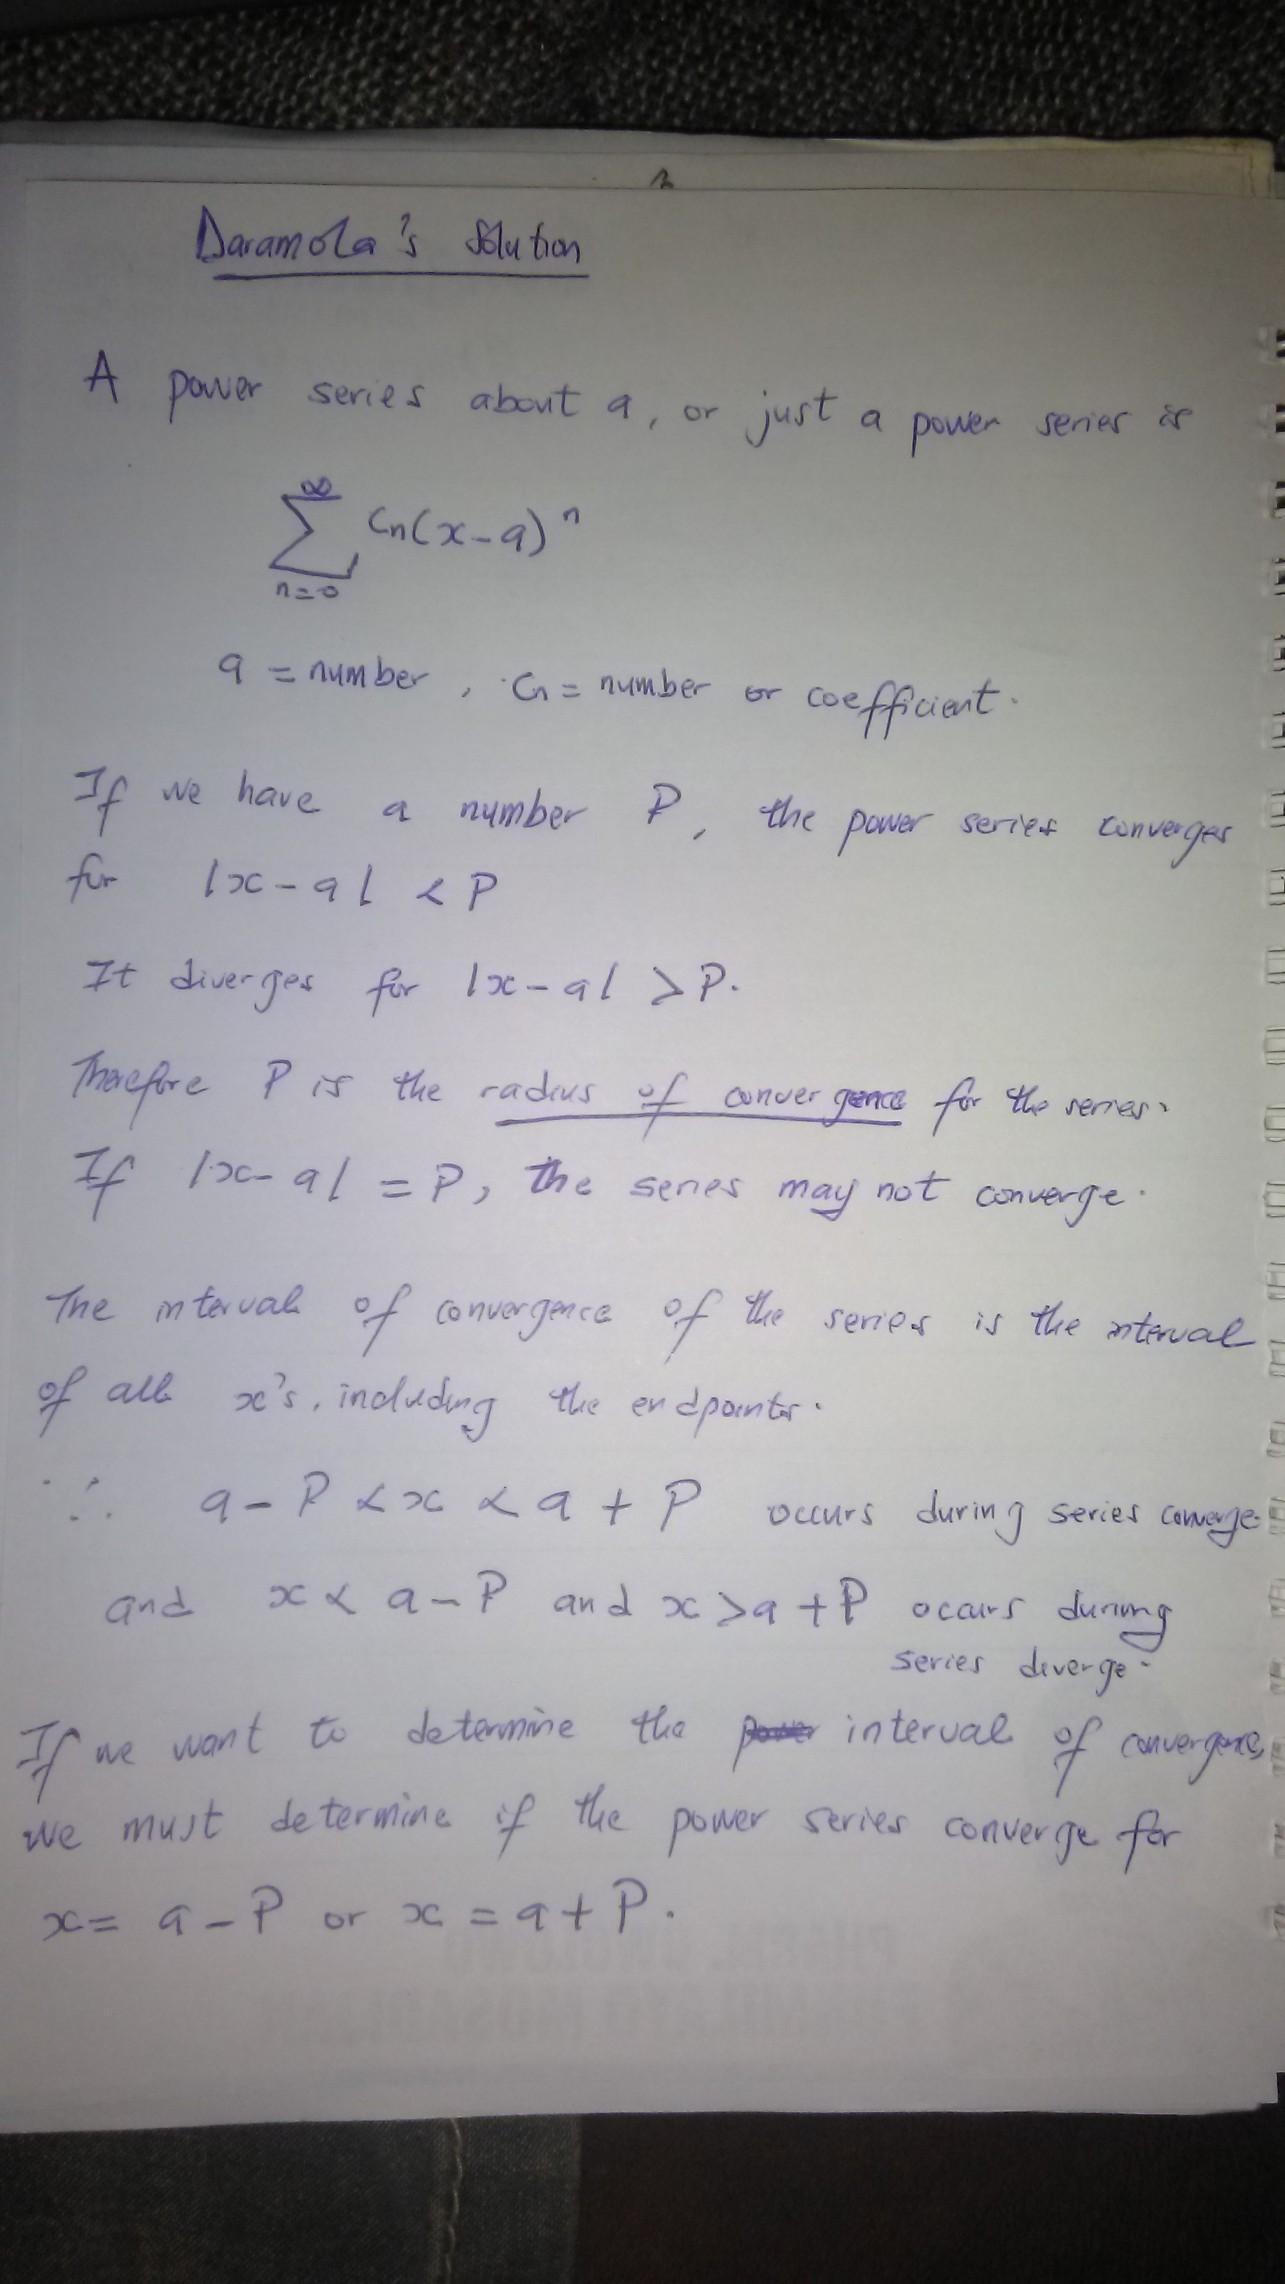 Daramola's solution
A power series about a, or just a power series is
∞
∑ Cn(x-a)^n
n=0
a = number, Cn = number or coefficient.
If we have a number P, the power series converges
for |x-a| < P
It diverges for |x-a| > P.
Therefore P is the radius of convergence for the series.
If |x-a| = P, the series may not converge.
The interval of convergence of the series is the interval
of all x's, including the endpoints.
∴ a-P < x < a+P occurs during series converge.
and x < a-P and x > a+P occurs during
series diverge.
If we want to determine the interval of convergence,
we must determine if the power series converge for
x = a-P or x = a+P.